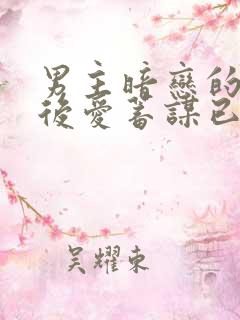 男主暗戀的
後愛蓄謀已
吳耀東